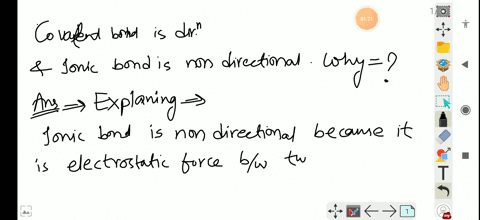 Covalent bond is dir.n
& Ionic bond is non directional. Why = ?
Ans ⇒ Explaning ⇒
Ionic bond is non directional because it
is electrostatic force b/w tw